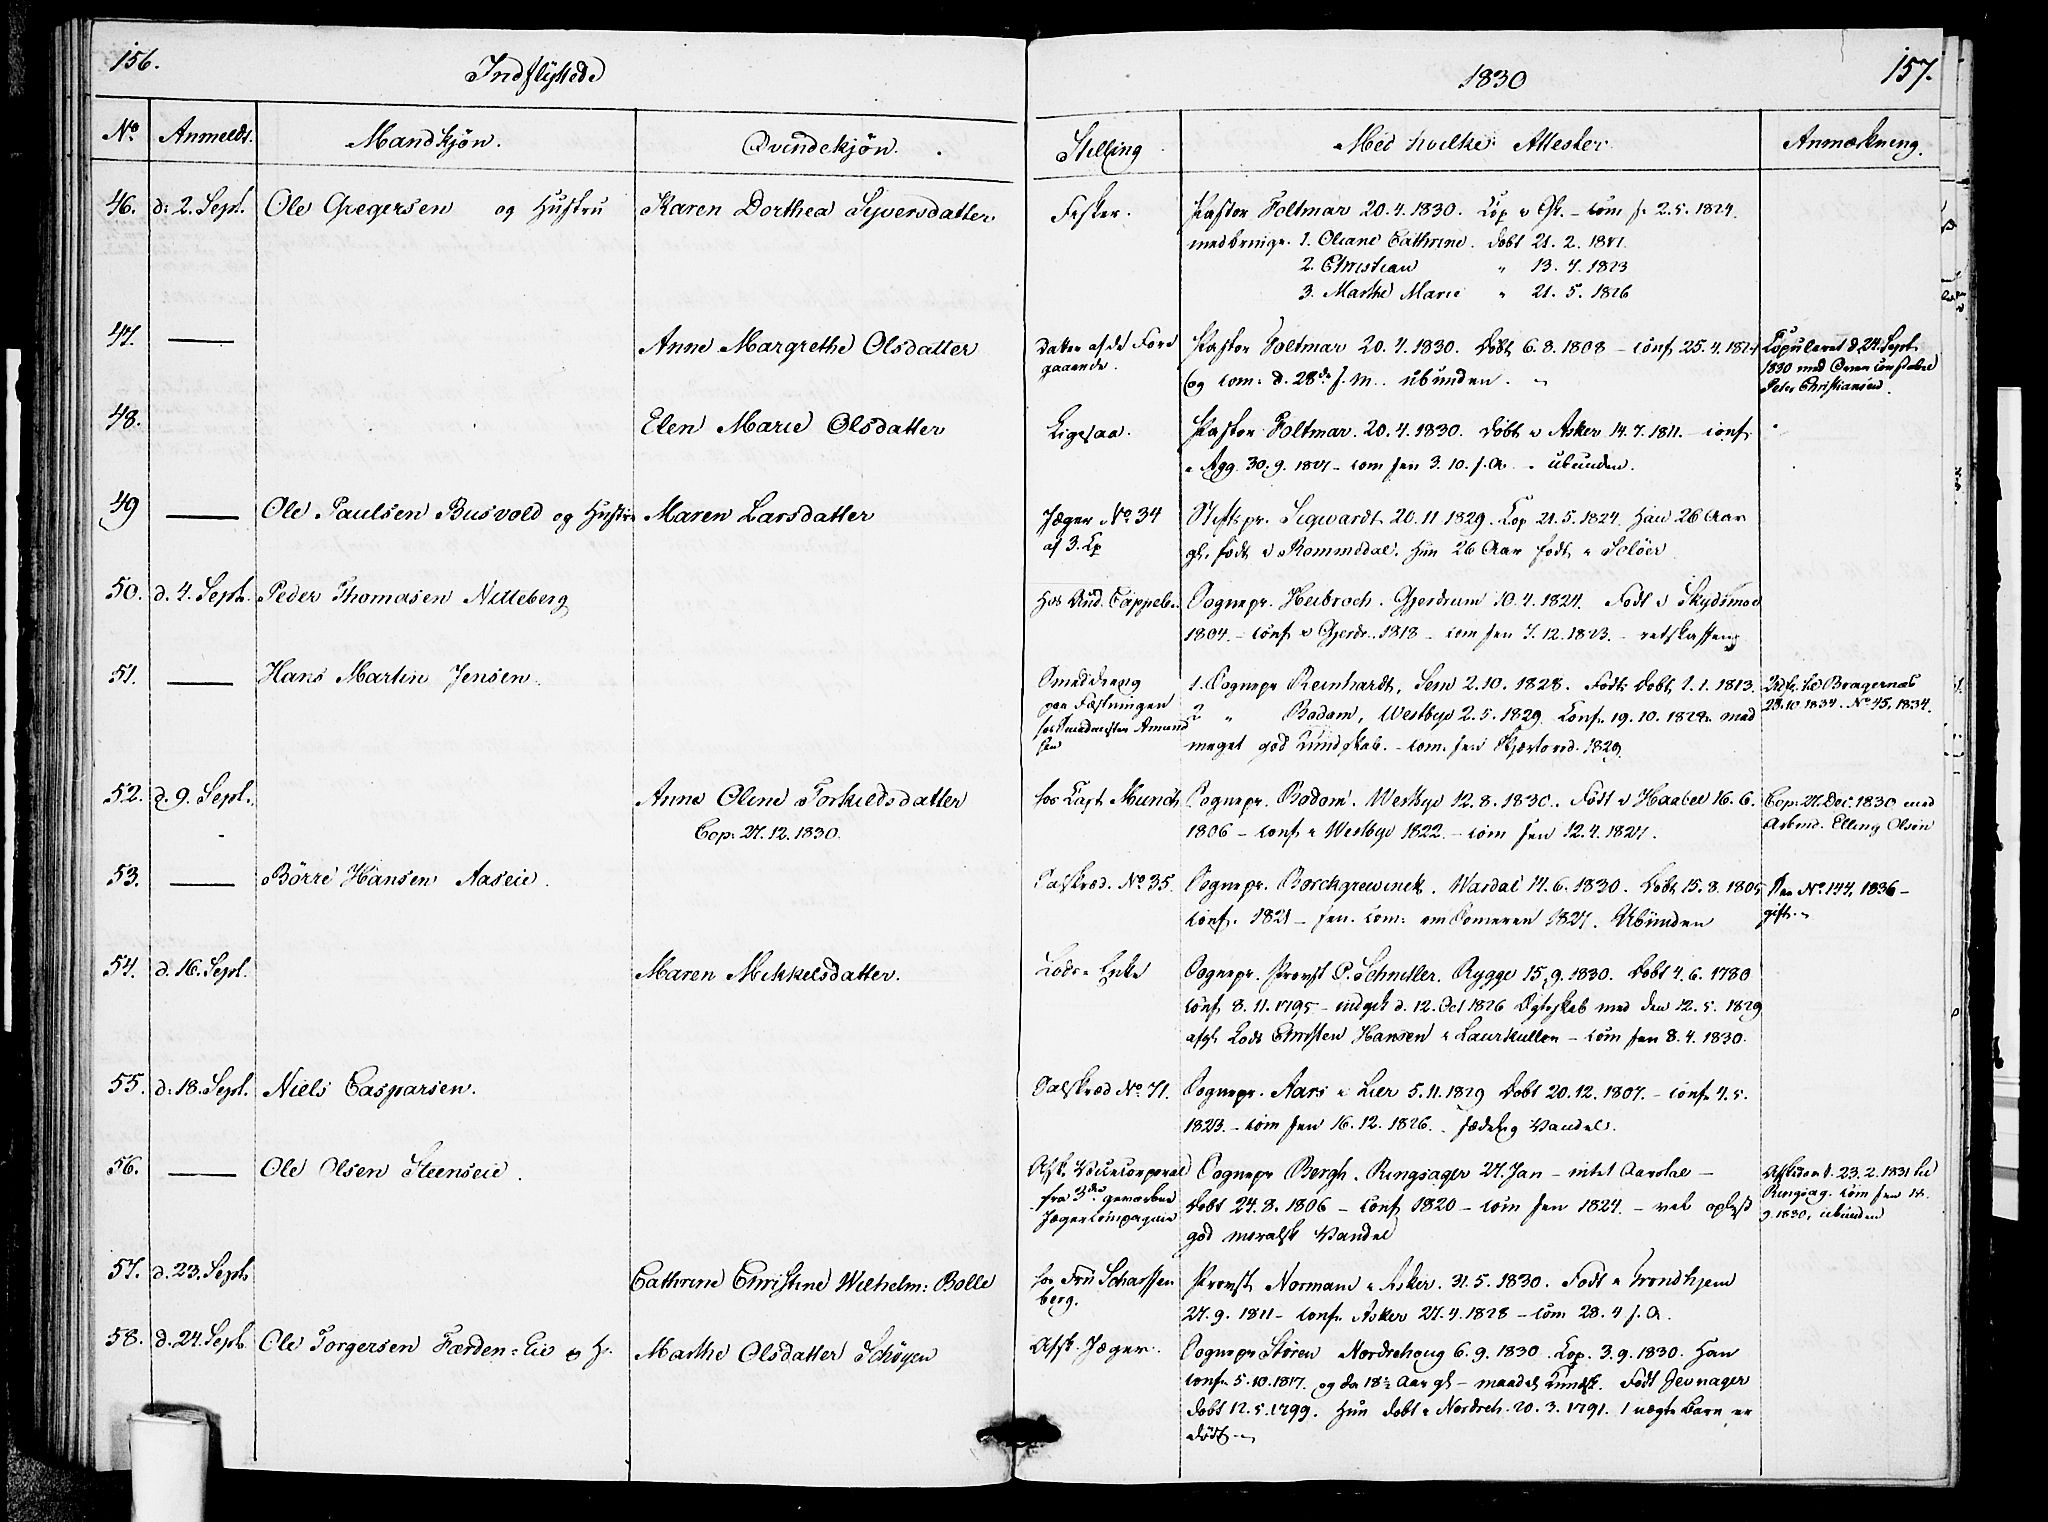 156.
Indflyttede
1830
157.
No Anmeldt. Mandkjøn. Qvindekjøn. Stilling Med hvilke Attester Anmærkning.
46. d. 2. Sept. Ole Gregersen og Hustru Karen Dorthea Sejversdatter Fisker. Pastor Foltmar 20.4.1830. Cop. Gl. com f. 2.5.1824.
medbringe. 1. Oleane Cathrine. Døbt 21.2.1821.
2. Christian " 13.7.1823
3. Marthe Marie " 21.5.1826
47. — Anne Margrethe Olsdatter Datter af de Fore Pastor Foltmar 20.4.1830. Døbt 6.8.1808 – conf. 25.4.1824 Copuleret d. 24. Sept.
gaaende. og com: d. 28de s. M. ubunden. 1830 med
Peter Christiansen.
48. Elen Marie Olsdatter Ligesaa. Pastor Foltmar. 20.4.1830. døbt i Asker 14.7.1811. – conf.
i Agg. 30.9.1827 – com sen 3.10. s.A. – ubunden.
49 — Ole Paulsen Busvold og Hustru Maren Larsdatter Jæger No. 34 Stiftspr. Sigwardt 20.11 1829. Cop 21.5.1824. Han 26 Aar
af 3. Cp gl. født i Rommedal. Hun 26 Aar født i Soløer
50. d. 4. Sept. Peder Thomasen Nitteberg hos Aud. Cappelen Sognepr. Heibroch. Gjerdrum 10.4.1824. Født i Skydsmoe
1804. – conf. i Gjerdr. 1818 – com sen 7.12.1823. – retskaffen
51. — Hans Martin Jensen. Smeddreng 1. Sognepr Reinhardt, Sem 2.10.1828. Født Døbt 1.1.1813. Udfl. til Bragernæs
paa Fæstningen 2 " Bodom, Westbye 2.5.1829. Conf. 19.10.1828 med 28.10 1834. No 45, 1834.
hos Smedmester Amund
sen meget god Kundskab. – com. sen Skjærtorsd. 1829.
52. d. 9. Sept. Anne Oline Torkildsdatter hos Capt. Munch Sognepr. Bodom. Westbye 12.8.1830. Født i Haabøl 16.6. Cop: 27. Dec. 1830 med
Cop: 27.12.1830. 1806 – conf. i Westbye 1822. – com sen 12.4.1827. Arbmd. Elling Olsen
53. — Børre Hansen Aaseie. Salskred. No. 35. Sognepr. Borchgrewinck. Wardal 14.6.1830. Døbt 15.8.1805 See No. 144, 1836 –
conf. 1821 – sen. com: om Someren 1827. Ubunden gift.
54. d. 16. Sept. Maren Mikkelsdatter. Lods-Enke Sognepr. Provst P. Schnitler. Rygge 15.9.1830. Døbt 4.6.1780
conf. 8.11.1795 – indgik d. 12. Oct 1826 Egteskab med den 12.5.1829
afg. Lods Christen Hansen i Laurkullen – com sen 8.4.1830.
55. d. 18. Sept. Niels Casparsen. Salskred No. 71. Sognepr. Aars i Lier 5.11.1829 Døbt 20.12.1807. – conf. 4.5.
1823. – com sen 16.12.1826. sædelig Vandel.
56. — Ole Olsen Steenseie. Afsk. Vicecorporal Sognepr Bergh. Ringsager 27. Jan – intet Aarstal – Afskeden d. 23.2.1831 til
fra 3die geworbne Døbt 24.8.1806 – conf. 1820 – com sen 1824. – vel oplyst Ringsag. com sen 18.
Jægercompagnie god moralsk Vandel 9.1830, ubunden
57. d. 23. Sept. Cathrine Christine Wilhelm: Bolle hos Fru Scharffen Provst Normann i Asker. 31.5.1830. Født i Trondhjem
berg. 27.9.1811 – conf. Asker 27.4.1828 – com 28.4 s.A.
58. d. 24. Sept. Ole Torgersen Færden-Eie og H. Marthe Olsdatter Schøyen Afsk. Jæger. Sognepr Støren Nordrehoug 6.9.1830. Cop. 3.9.1830. Han
conf. 5.10.1817. og da 18½ Aar gl. – maadel. Kundsk. Født Jevnager
døbt 12.5.1799. Hun døbt i Nordreh. 20.3.1791. 1 uægte Barn er
dødt –